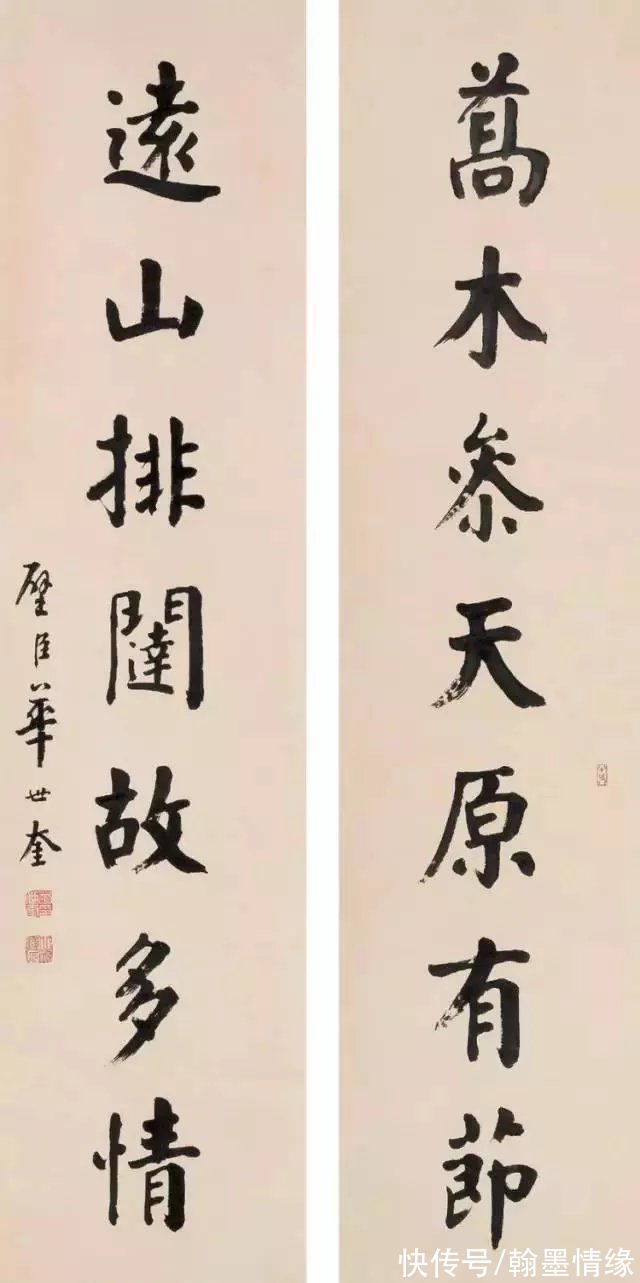 蒿木叅天原有節
遠山排闥故多情
璧臣華世奎
快传号/翰墨情缘